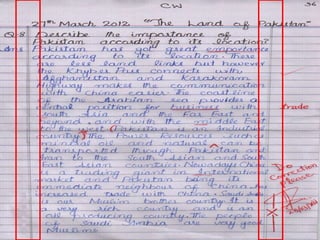 CW
36
27th March 2012 "The Land of Pakistan"
Q:8 Describe the importance of
Pakistan according to its location?
Ans Pakistan has got great importance
according to its location. There
are less learn links but however
the Khyber Pass connects with
Afghanistan and Karakoram
Highway makes the communication
with China easier. The coast line
of the Arabian sea provides a
central position for business with trade
South Asia and the Far East and
beyond, and with the middle East
to the west. (Pakistan is an Industial
country) The Power Resources such as
mineral oil and natural ^ can be
transported through Pakistan and
Iran to the South Asian and South
East Asian countries. Nowadays China
is a trading giant in International
market and Pakistan being its
immediate neighbour of China has
increased trade with China. Saudi
is our Muslim brother country. It is
a very rich country and is an
oil producing country. The people
of Saudi Arabia are very good
Muslims.
Do
correction
Please